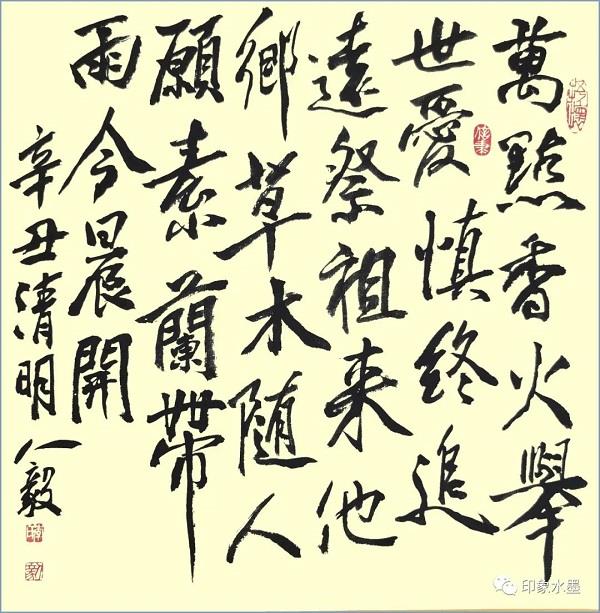 萬點香火舉
世愛慎終追
遠祭祖来他
鄉草木随人
願素蘭帶
雨今晨開
辛丑清明人毅
印象水墨